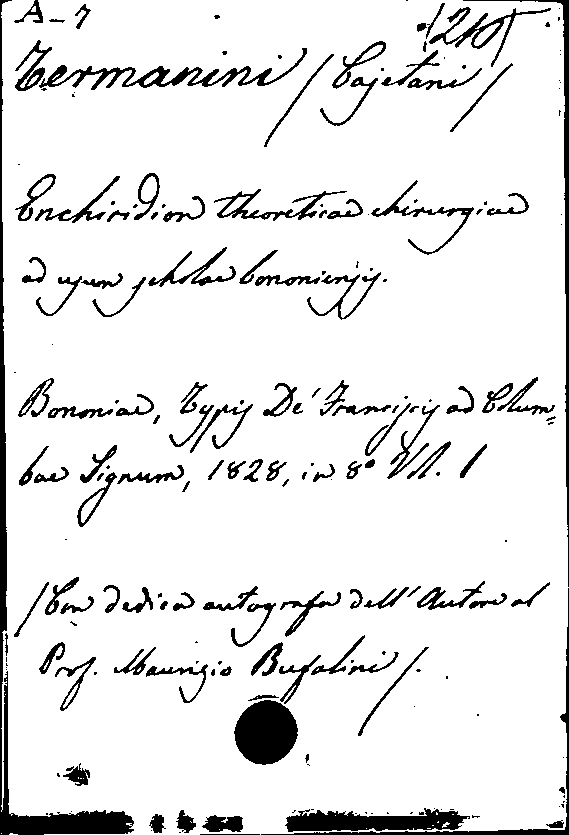 A-7 (210)
Termanini /Cajetani/
Enchiridion theoreticae chirurgiae
ad usum scholae bononiensis.
Bononiae, Typis De' Franciscis ad Colum=
bae Signum, 1828, in 8° Vol. 1
/Con dedica autografa dell' Autore al
Prof. Maurizio Bufalini/.